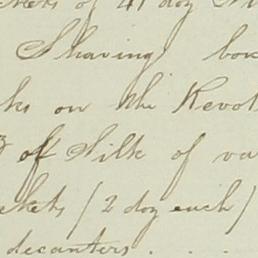 of 41 doz
Shaving box
on the Revol
of Silk of va
(2 doz each)
decanters . . .